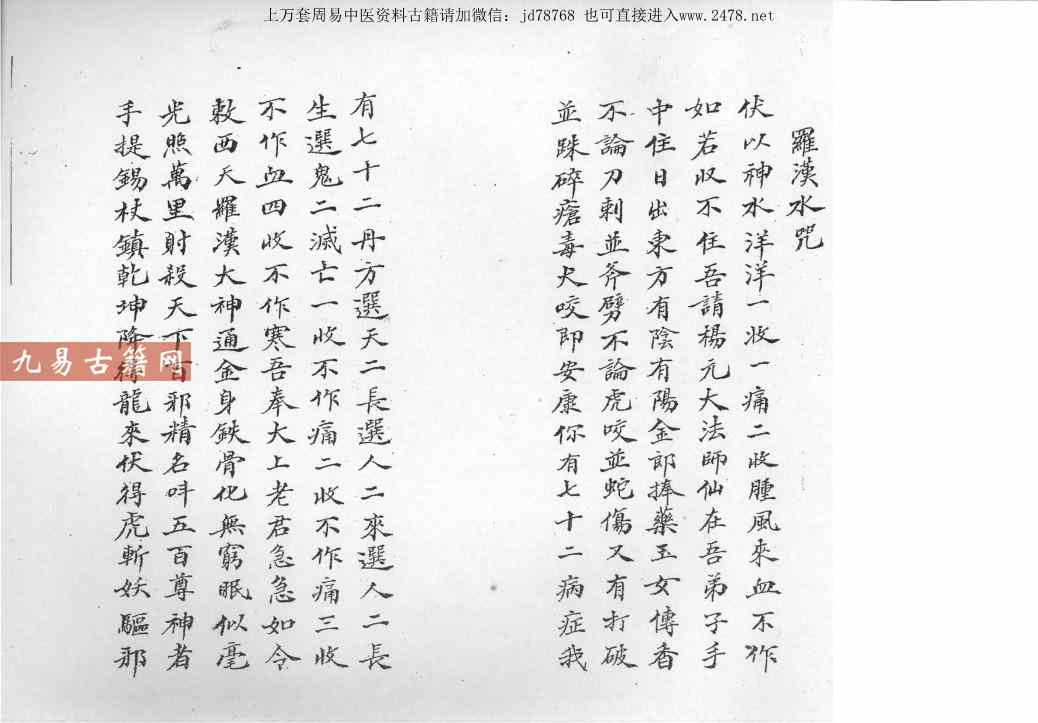 上万套周易中医资料古籍请加微信：jd78768 也可直接进入www.2478.net
羅漢水咒
伏以神水洋洋一收一痛二收腫風來血不作
如若収不住吾請楊元大法師仙在吾弟子手
中住日出東方有陰有陽金郎捧藥玉女傳香
不論刀刺並斧劈不論虎咬並蛇傷又有打破
並跌碎瘡毒犬咬即安康你有七十二病症我
有七十二丹方選天二長選人二來選人二長
生選鬼二滅亡一收不作痛二收不作痛三收
不作血四收不作寒吾奉大上老君急急如令
敕西天羅漢大神通金身鉄骨化無窮眠似毫
光照萬里射殺天下百邪精名呌五百尊神者
手提錫杖鎮乾坤降得龍來伏得虎斬妖驅邪
九易古籍网